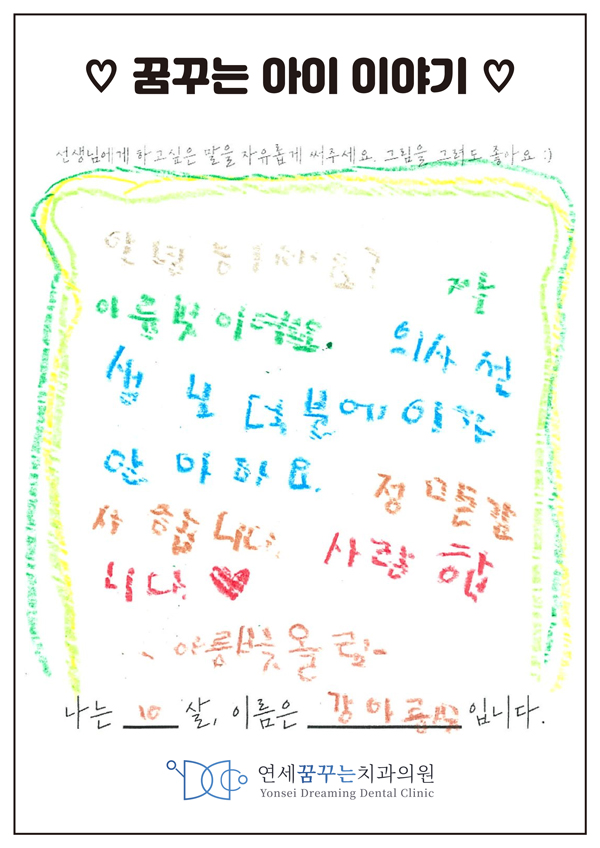 ♡ 꿈꾸는 아이 이야기 ♡
선생님에게 하고싶은 말을 자유롭게 써주세요. 그림을 그려도 좋아요 :)
안녕하세요? 저는
아름붓이에요. 의사 선
생님 덕분에 이가
안 아파요. 정말 감
사합니다. 사랑합
니다. ♥
- 아름붓 올림 -
나는 10 살, 이름은 강아름붓 입니다.
연세꿈꾸는치과의원
Yonsei Dreaming Dental Clinic